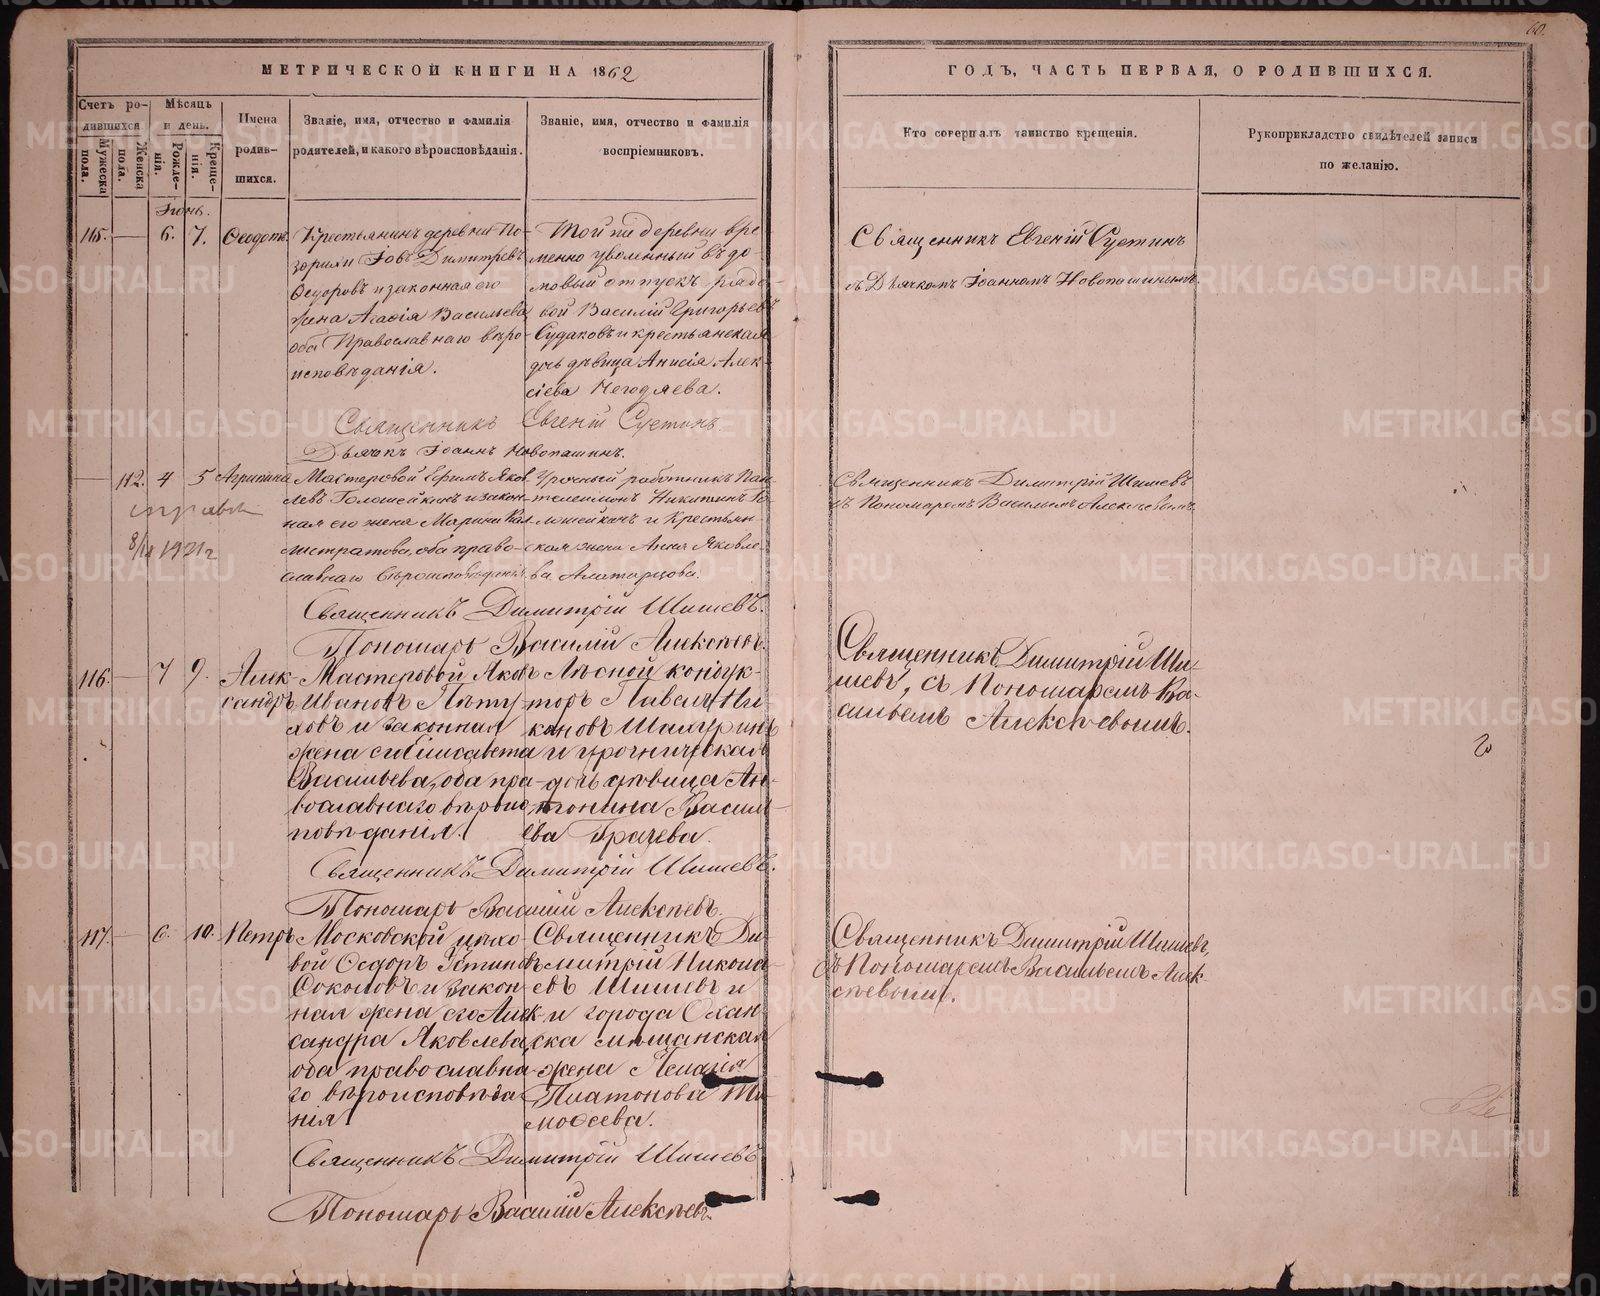 60.
МЕТРИЧЕСКОЙ КНИГИ НА 1862
ГОДЪ, ЧАСТЬ ПЕРВАЯ, О РОДИВШИХСЯ.
Счетъ ро-
дившихся
Мужеска
пола.
Женска
пола.
Мѣсяцъ
и день.
Рожде-
нія.
Креще-
нія.
Имена
родив-
шихся.
Званіе, имя, отчество и фамилія
родителей, и какого вѣроисповѣданія.
Званіе, имя, отчество и фамилія
воспріемниковъ.
Кто совершалъ таинство крещенія.
Рукоприкладство свидѣтелей записи
по желанію.
Іюнь.
115. — 6. 7. Ѳеодотъ.
Крестьянинъ деревни По-
зорихи Іовъ Димитревъ
Ѳедоровъ и законная его
жена Агафія Васильева,
оба Православнаго вѣро-
исповѣданія.
Той же деревни вре
менно уволенный въ до-
мовый отпускъ рядо-
вой Василій Григорьевъ
Судаковъ и крестьянская
дочь дѣвица Анисія Алек-
сіева Негодяева.
Священникъ Евгеній Суетинъ
съ Дьячкомъ Іоанномъ Новопашинымъ.
Священникъ Евгеній Суетинъ.
Дьячекъ Іоаннъ Новопашинъ.
— 112. 4 5 Агрипина
справка
8/IX 1921 г
Мастеровой Ефимъ Яков
левъ Голошейкинъ и закон-
ная его жена Марина Кал-
листратова, оба право-
славнаго вѣроисповѣданія
Урочный работникъ Пан-
телеимонъ Никитинъ Го-
лошейкинъ и Крестьян-
ская жена Анна Яковле-
ва Алатарцова.
Священникъ Димитрій Шишевъ
съ Пономаремъ Васильемъ Алексѣевымъ.
Священникъ Димитрій Шишевъ.
Пономарь Василій Алексѣевъ.
116. — 7 9. Алек-
сандръ
Мастеровой Яковъ
Ивановъ Пѣту-
ховъ и законная
жена его Елисавета
Васильева, оба пра-
вославнаго вѣроис-
повѣданія.
Лѣсной кондук-
торъ Павелъ Ни-
кановъ Шамуринъ
и урочническая
дочь дѣвица Ан-
тонина Василь-
ева Грачева.
Священникъ Димитрій Ши-
шевъ, съ Пономаремъ Ва-
сильемъ Алексѣевымъ.
Священникъ Димитрій Шишевъ.
Пономарь Василій Алексѣевъ.
117. — 6. 10. Петръ
Московской цѣхо-
вой Ѳедоръ Устиновъ
Соколовъ и закон-
ная жена его Алек-
сандра Яковлева,
оба православна-
го вѣроисповѣда
нія
Священникъ Ди-
митрій Никола-
евъ Шишевъ и
и города Охан-
ска мѣщанская
жена Пелагія
Платонова Ти-
моѳеева.
Священникъ Димитрій Шишевъ,
съ Пономаремъ Васильемъ Алек-
сѣевымъ.
Священникъ Димитрій Шишевъ
Пономарь Василій Алексѣевъ.
METRIKI.GASO-URAL.RU